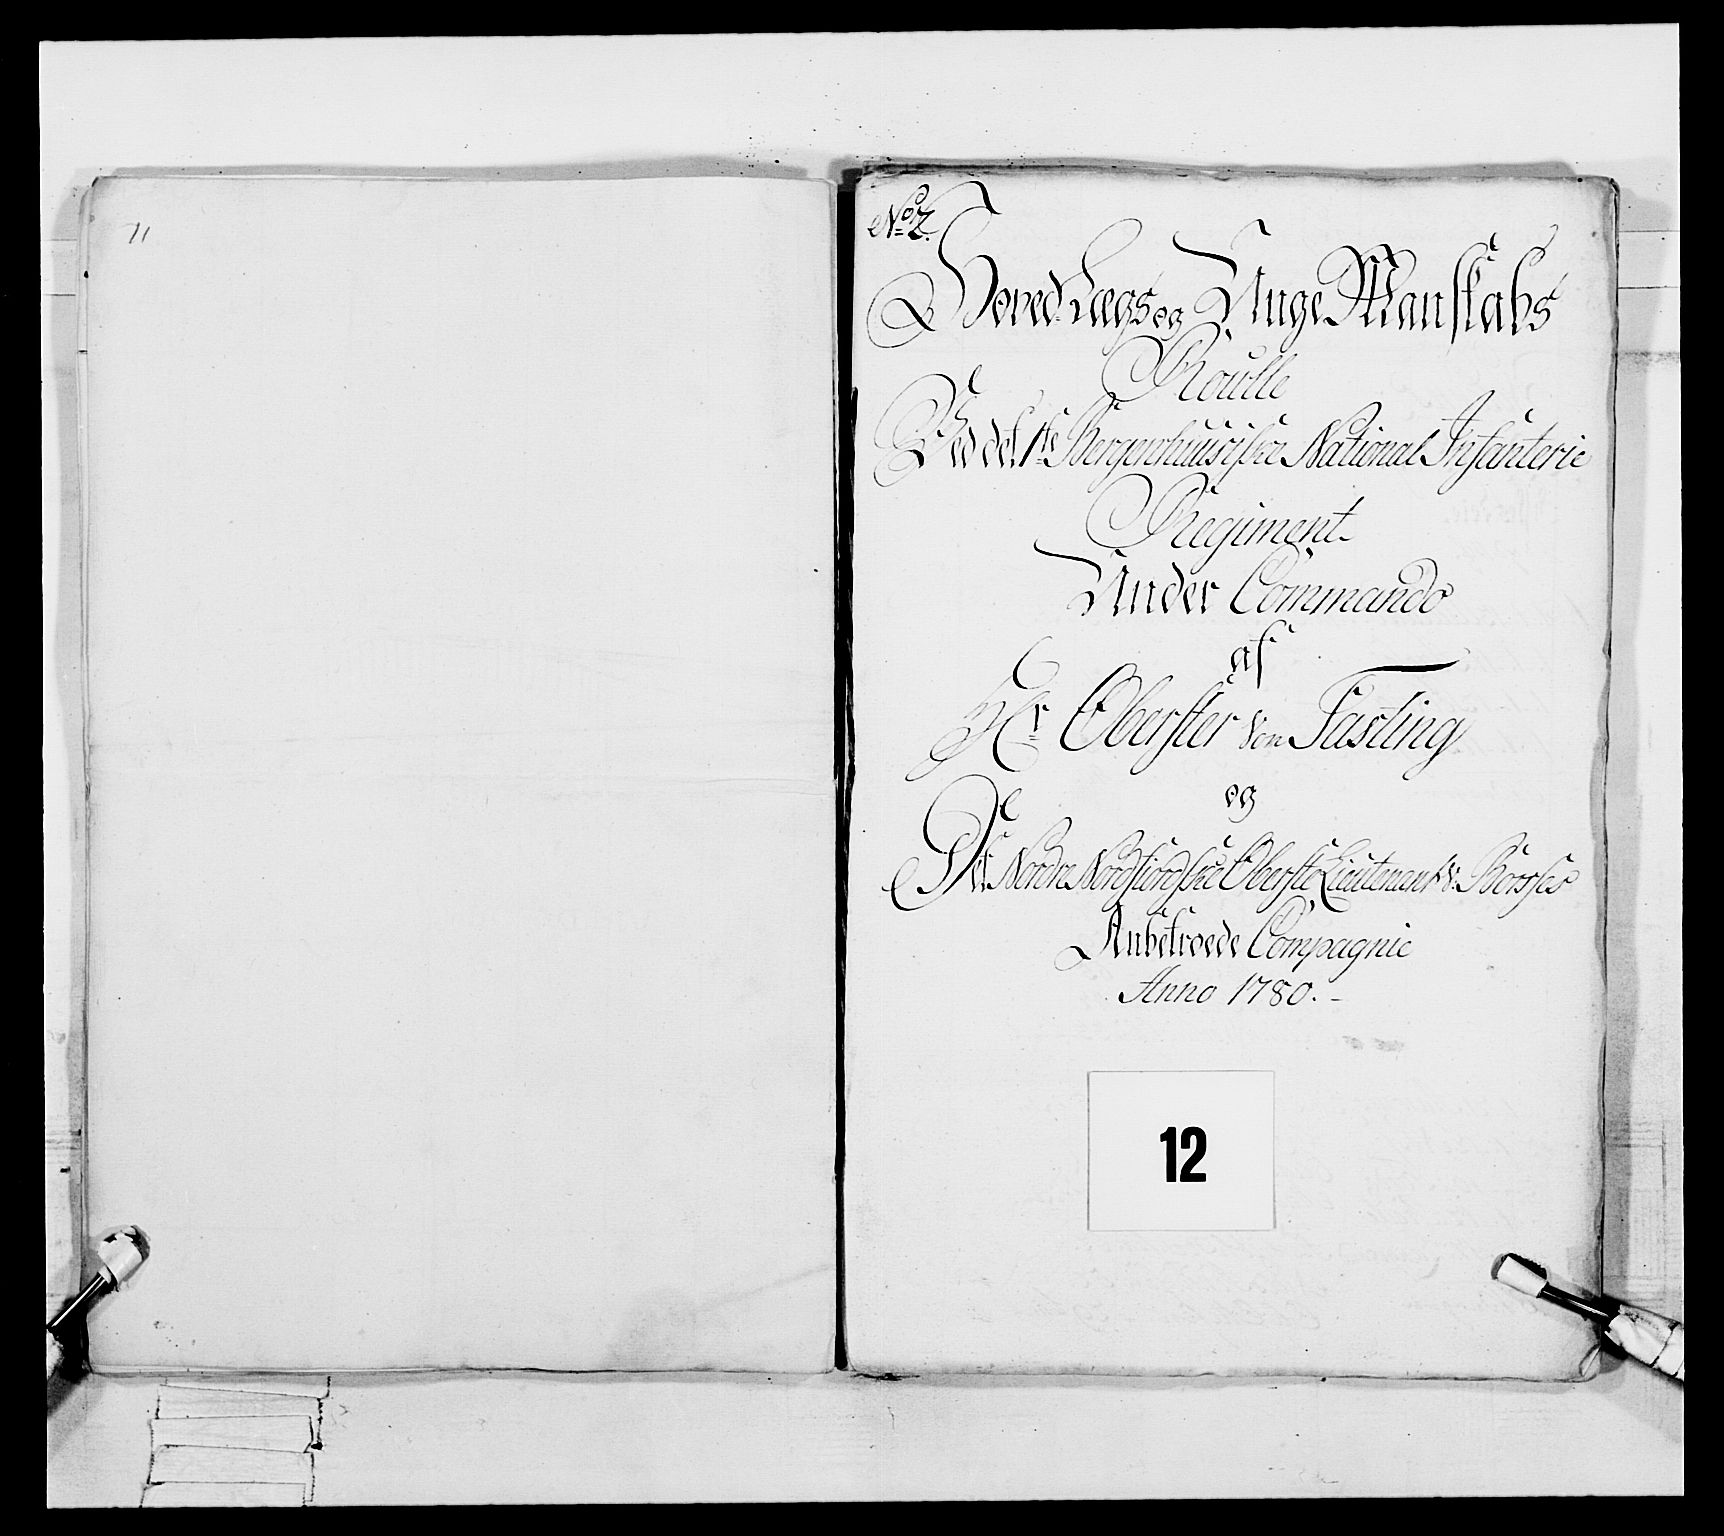 11
No 2.
Hoved Lægs og Unge Mandskabs
Roulle
Ved det 1te Bergenhuusiske National Infanterie
Regiment
Under Commando
af
Hr Oberster von Fasting
og
Det Nordre Nordfiordske Oberste Lieutenant v:
Anbetroede Compagnie
Anno 1780.-
12